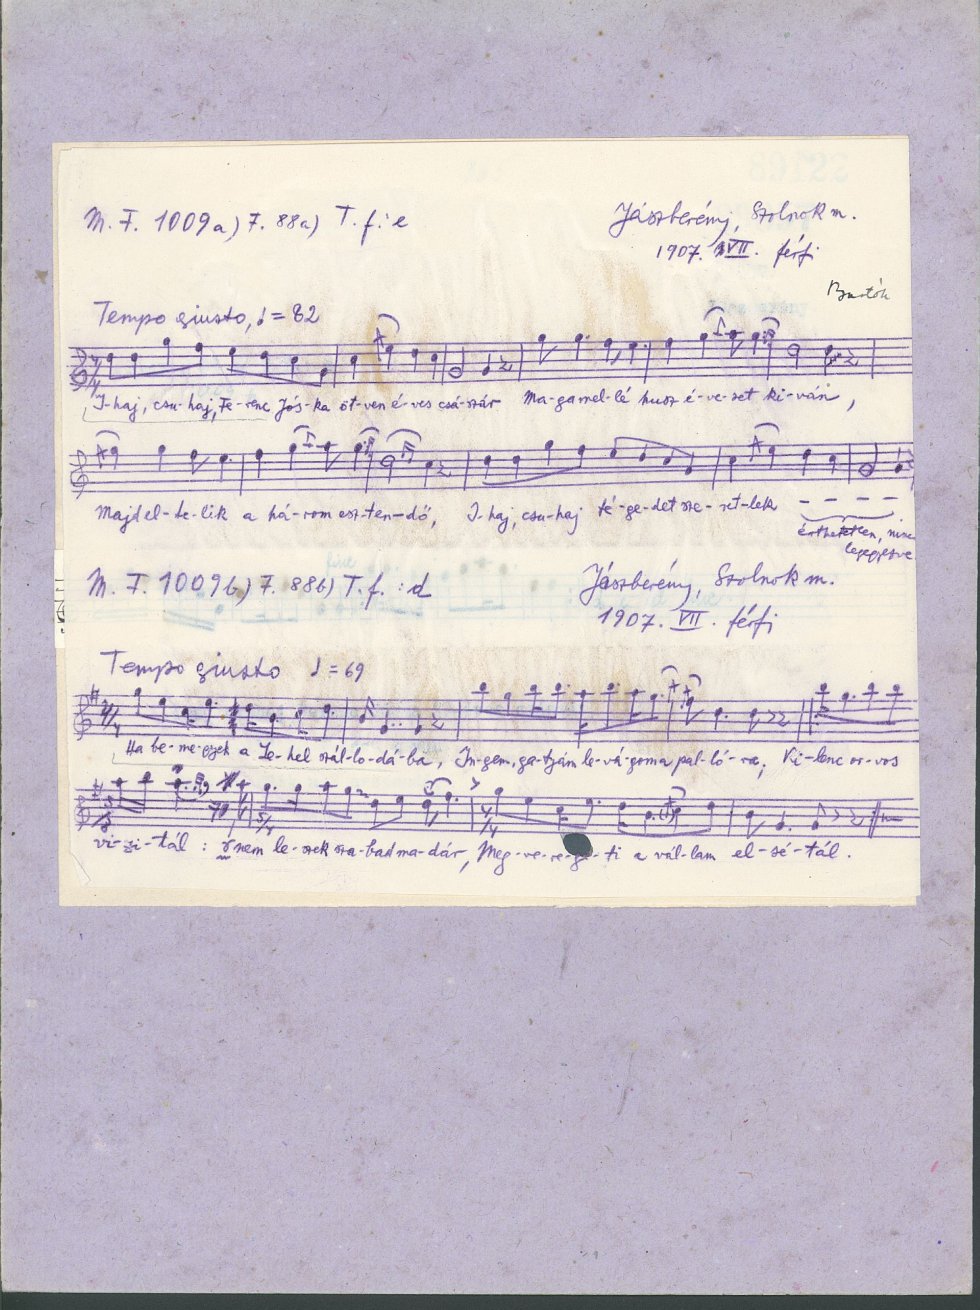 M. F. 1009a) F. 88a) T. f.: e
Jászberény, Szolnok m.
1907. VII. férfi
Bartók
Tempo giusto, ♩ = 82
I-haj, csu-haj, Fe-renc Jós-ka öt-ven é-ves csá-szár Ma-ga mel-lé husz é-ve-set ki-ván,
Majd el-te-lik a há-rom esz-ten-dő, I-haj, csu-haj té-ge-det sze-ret-lek – – – –
érthetetlen, nincs
lejegyezve
M. F. 1009b) F. 88b) T. f. : d
Jászberény, Szolnok m.
1907. VII. férfi
Tempo giusto ♩ = 69
Ha be-me-gyek a Le-hel szál-lo-dá-ba, In-gem, ga-tyám le-vá-gom a pal-ló-ra; Ki-lenc or-vos
vi-zi-tál : nem le-szek sza-bad ma-dár, Meg-ve-re-ge-ti a vál-lam el-sé-tál.